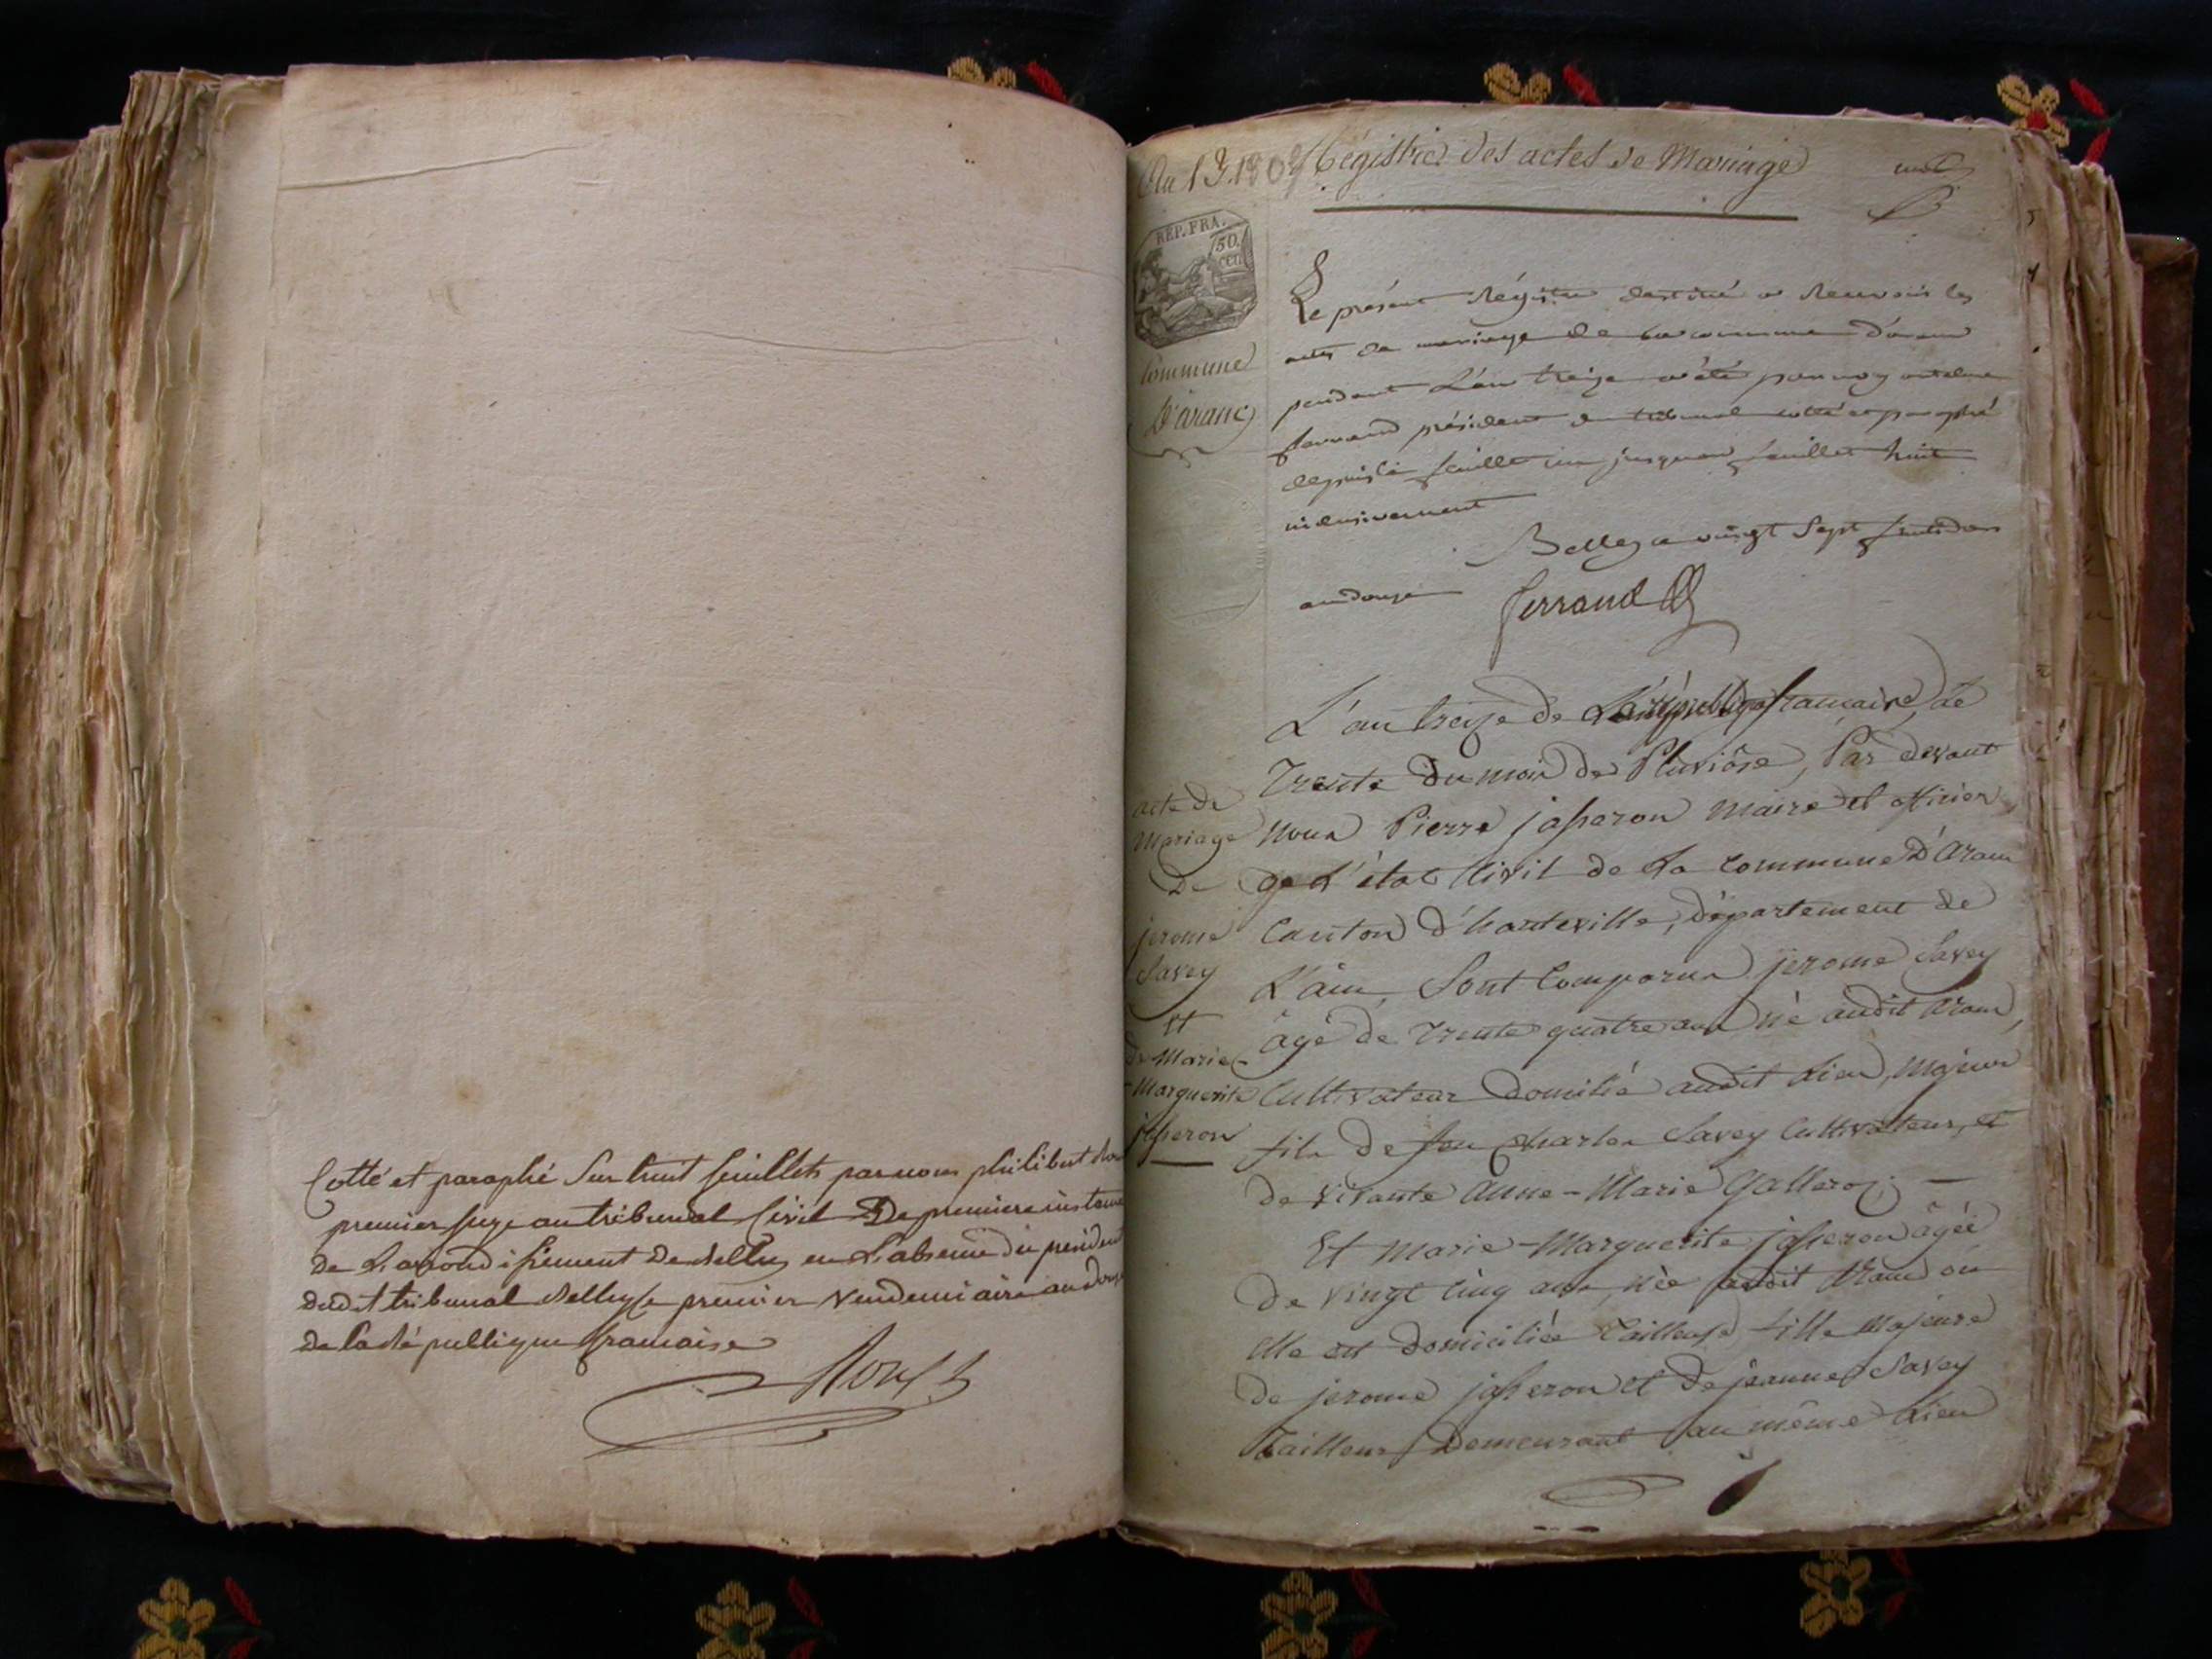 Cotté et paraphé Sur huit feuillets par nous philibert
premier juge au tribunal Civil De premiere instance
de L'arrondissement De Belley en L'absence du president
dudit tribunal Belley le premier vendemiaire an douze
de la République francaise
An 13. 180 Régistre des actes de Mariage
REP. FRA.
50.
CEN.
Commune
D'aranc
Le présent Régistre destiné a Recevoir les
actes de mariage de la commune d'aranc
pendant L'an treize a été par nous
ferrand président du tribunal cotté et paraphé
depuis le feuillet un jusqu'au feuillet huit
inclusivement
Belley ce vingt Sept fructidor
an douze
ferrand
L'an treize de La république francaise, Le
Trente du mois de Pluviôse, Par devant
nous Pierre jasseron Maire et officier
de L'état Civil de La Commune D'Aranc
Canton d'hauteville, département de
L'ain, Sont Comparus jerome Savey
âgé de Trente quatre ans né audit Aranc,
Cultivateur domicilié audit Lieu, Majeur
fils de feu Charles Savey Cultivateur, et
de vivante Anne-Marie Galleroz; —
Acte de
Mariage
De
jerome
Savey
Et
de Marie-
-Marguerite
jasseron
Et Marie-Marguerite jasseron âgée
De vingt Cinq ans, née audit Aranc où
elle est domiciliée Tailleuse fille Majeure
De jerome jasseron et De jeanne Savey
Tailleur Demeurant au même Lieu